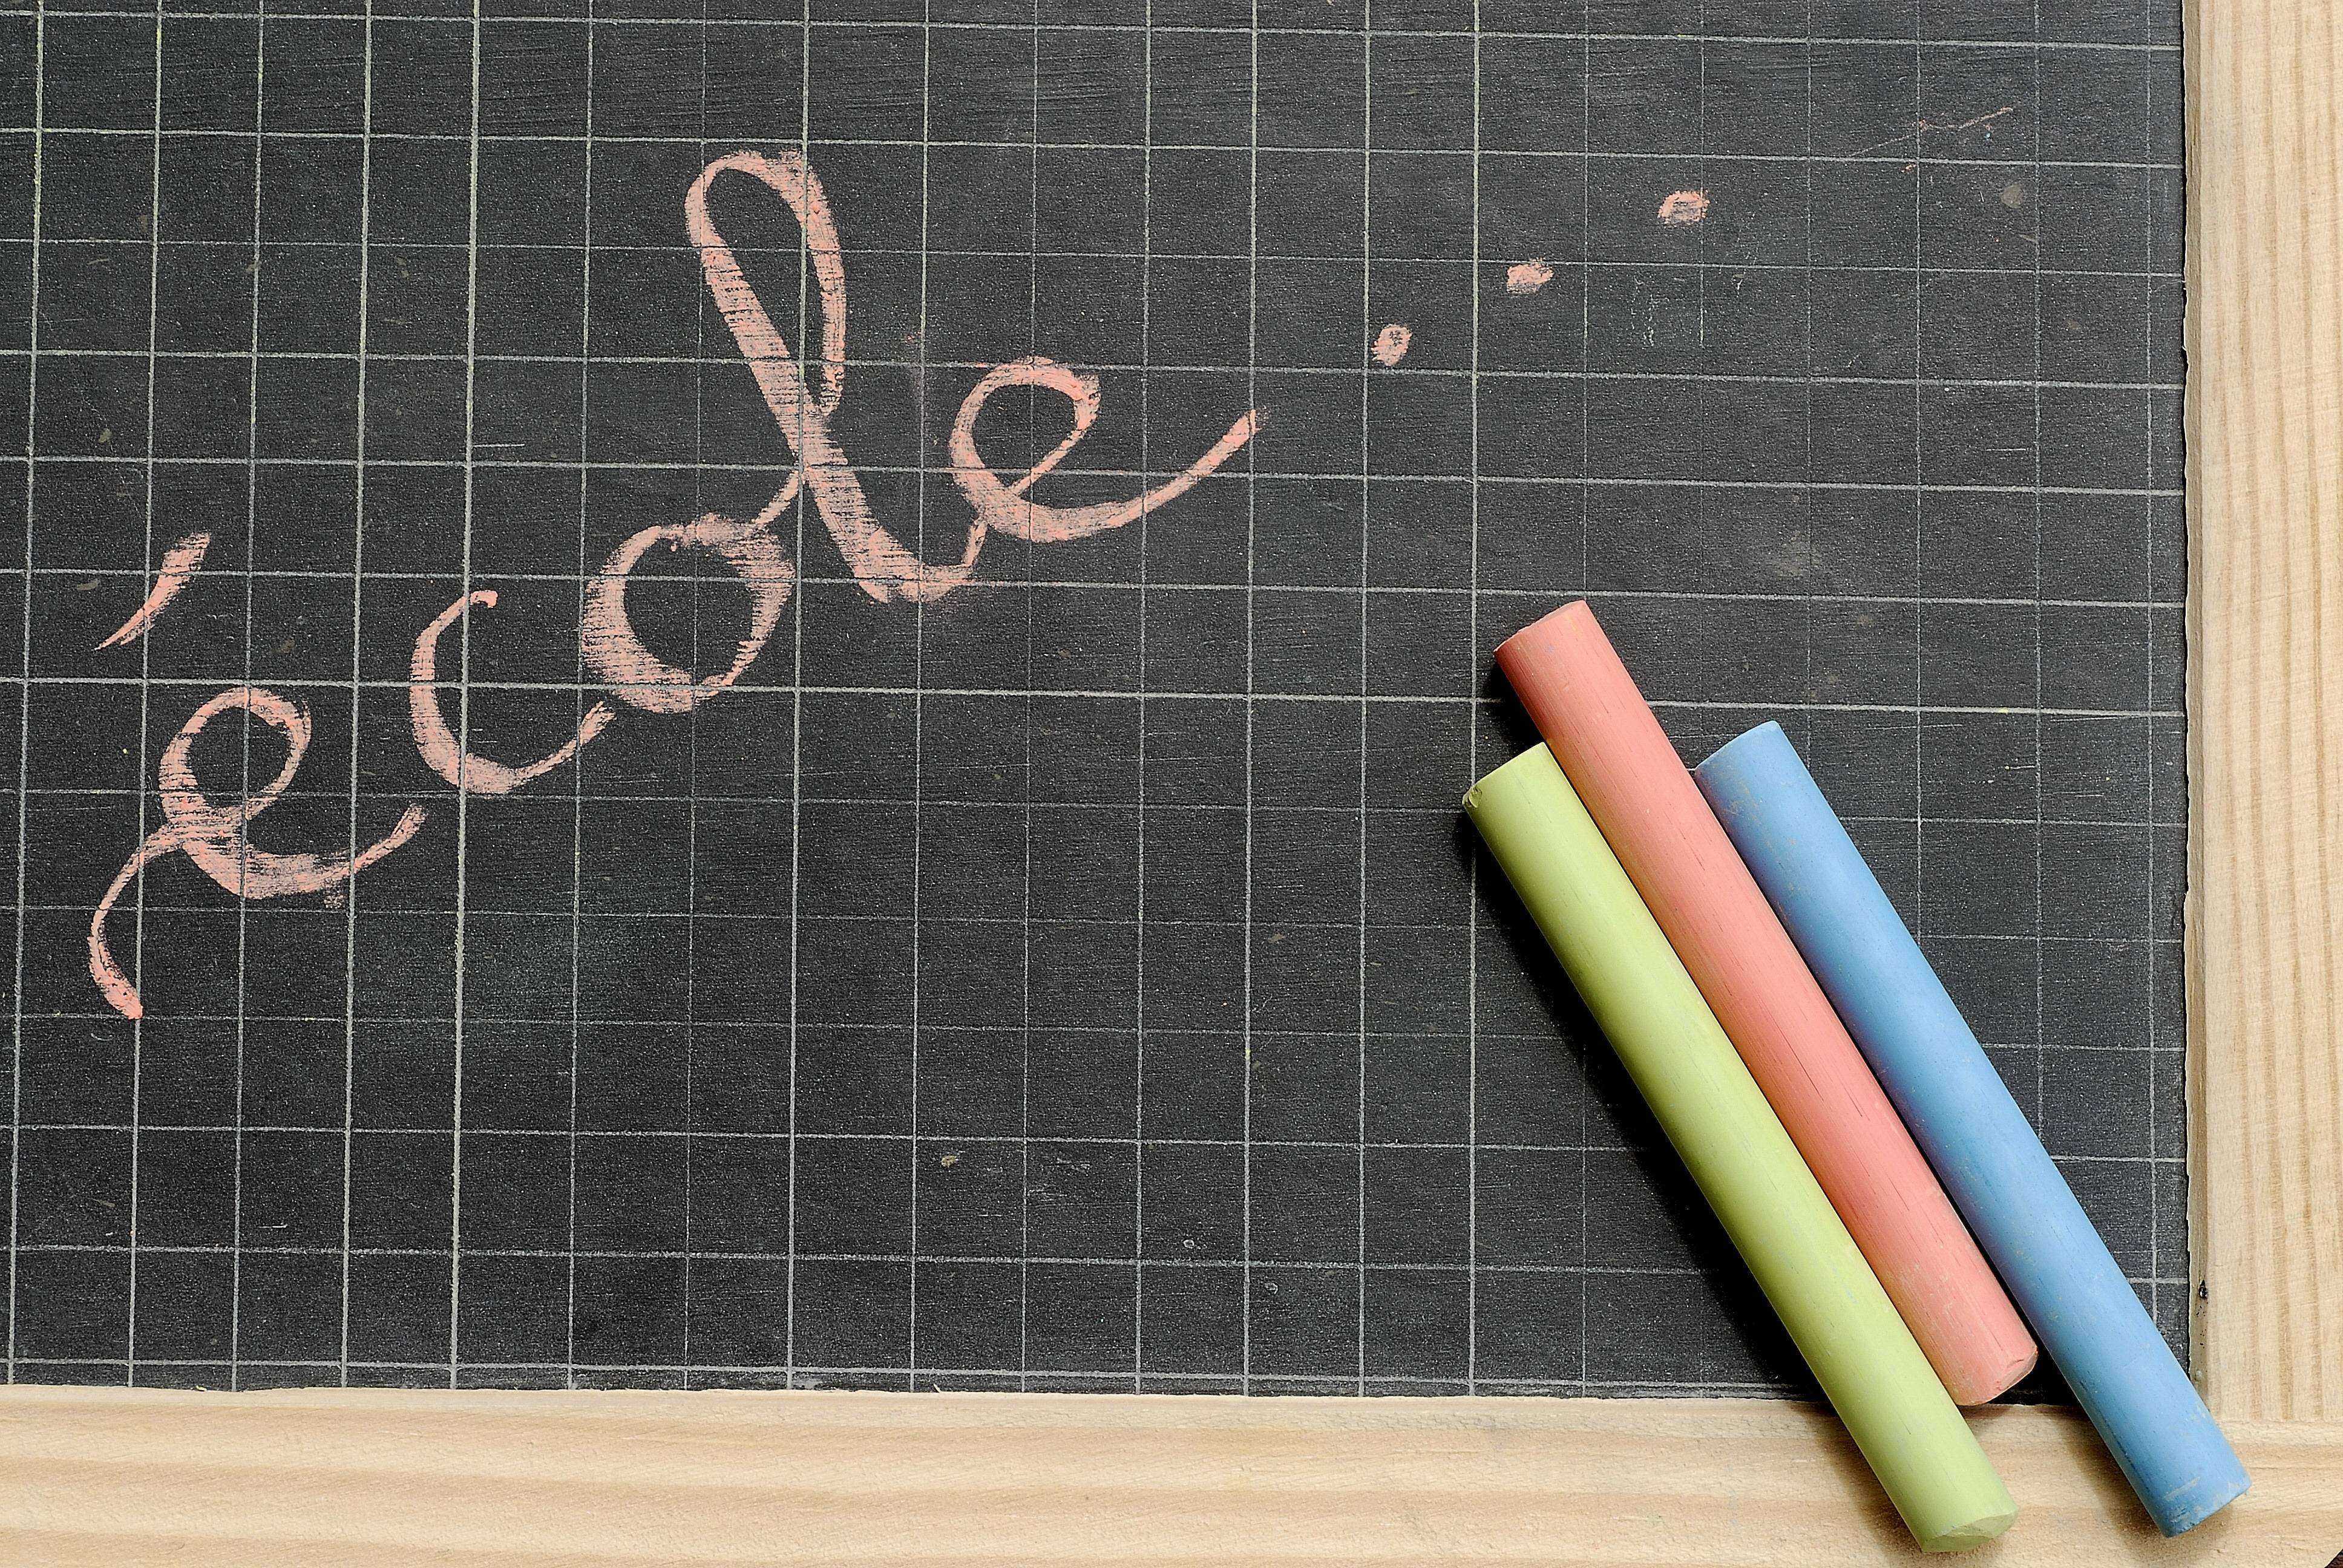 école...